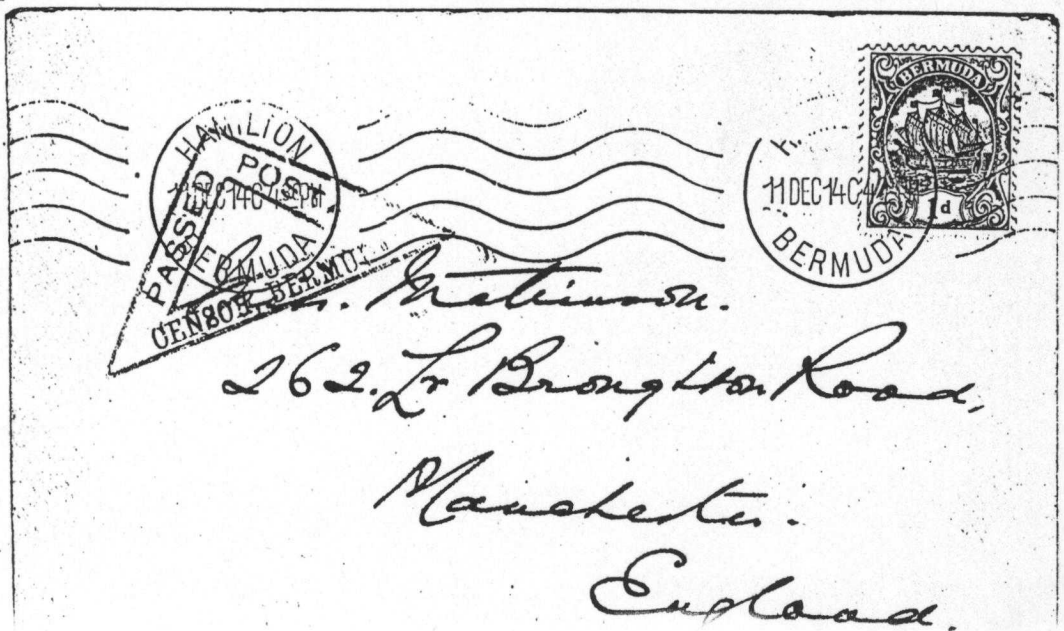 HAMILTON
11 DEC 14 C 4
BERMUDA
PASSED POST
CENSOR, BERMU
11 DEC 14 C 4
BERMUDA
BERMUDA
1d
262. Lr Broughton Road,
Manchester.
England.